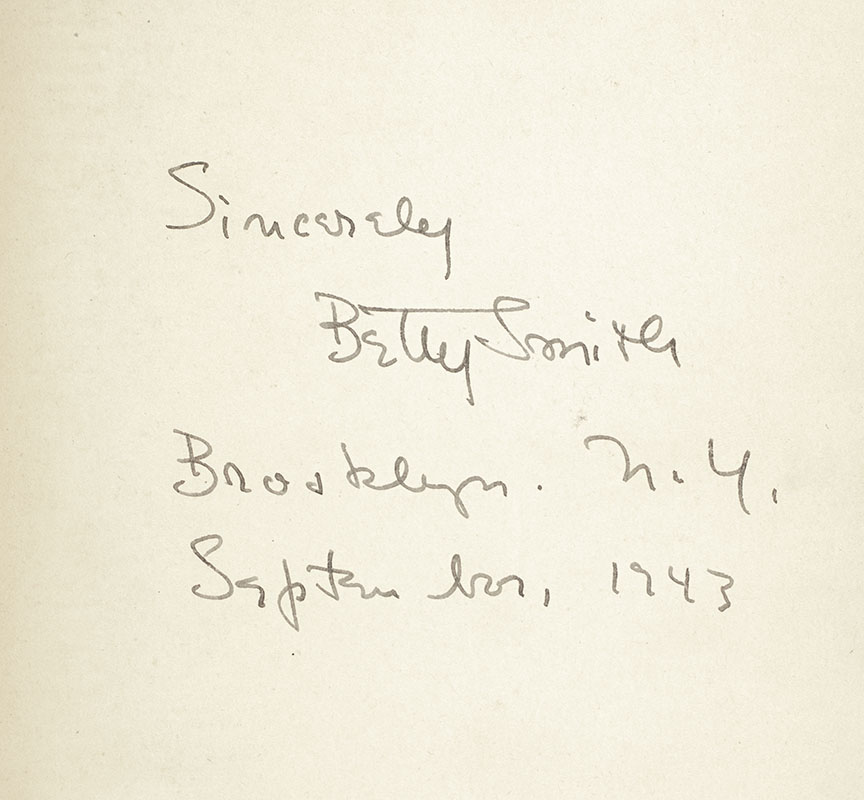 Sincerely
Betty Smith
Brooklyn. N.Y.
September, 1943